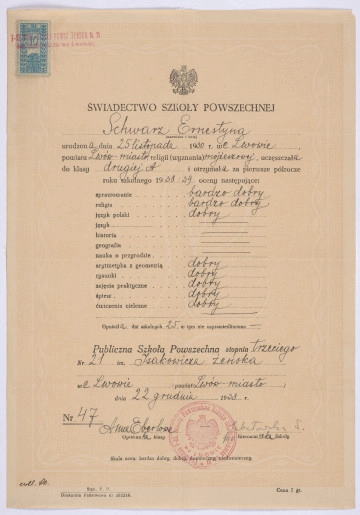 ŚWIADECTWO SZKOŁY POWSZECHNEJ
Schwarz Ernestyna
urodzona dnia 25 listopada 1930 r. we Lwowie,
powiatu Lwów-miasto religii (wyznania) mojżeszowej, uczęszczała
do klasy drugiej A i otrzymała za pierwsze półrocze
roku szkolnego 1938/39 oceny następujące:
sprawowanie bardzo dobry
religia bardzo dobry
język polski dobry
język
historia
geografia
nauka o przyrodzie
arytmetyka z geometrią dobry
rysunki dobry
zajęcia praktyczne dobry
śpiew dobry
ćwiczenia cielesne dobry
Opuściła dni szkolnych 25, w tym nie usprawiedliwiono —
Publiczna Szkoła Powszechna stopnia trzeciego
Nr 21 im. Isakowicza żeńska
we Lwowie powiatu Lwów-miasto
dnia 22 grudnia 1938.
Nr 47
Opiekunka klasy Kierowniczka Szkoły
Skala ocen: bardzo dobry, dobry, dostateczny, niedostateczny.
Cena 1 gr.